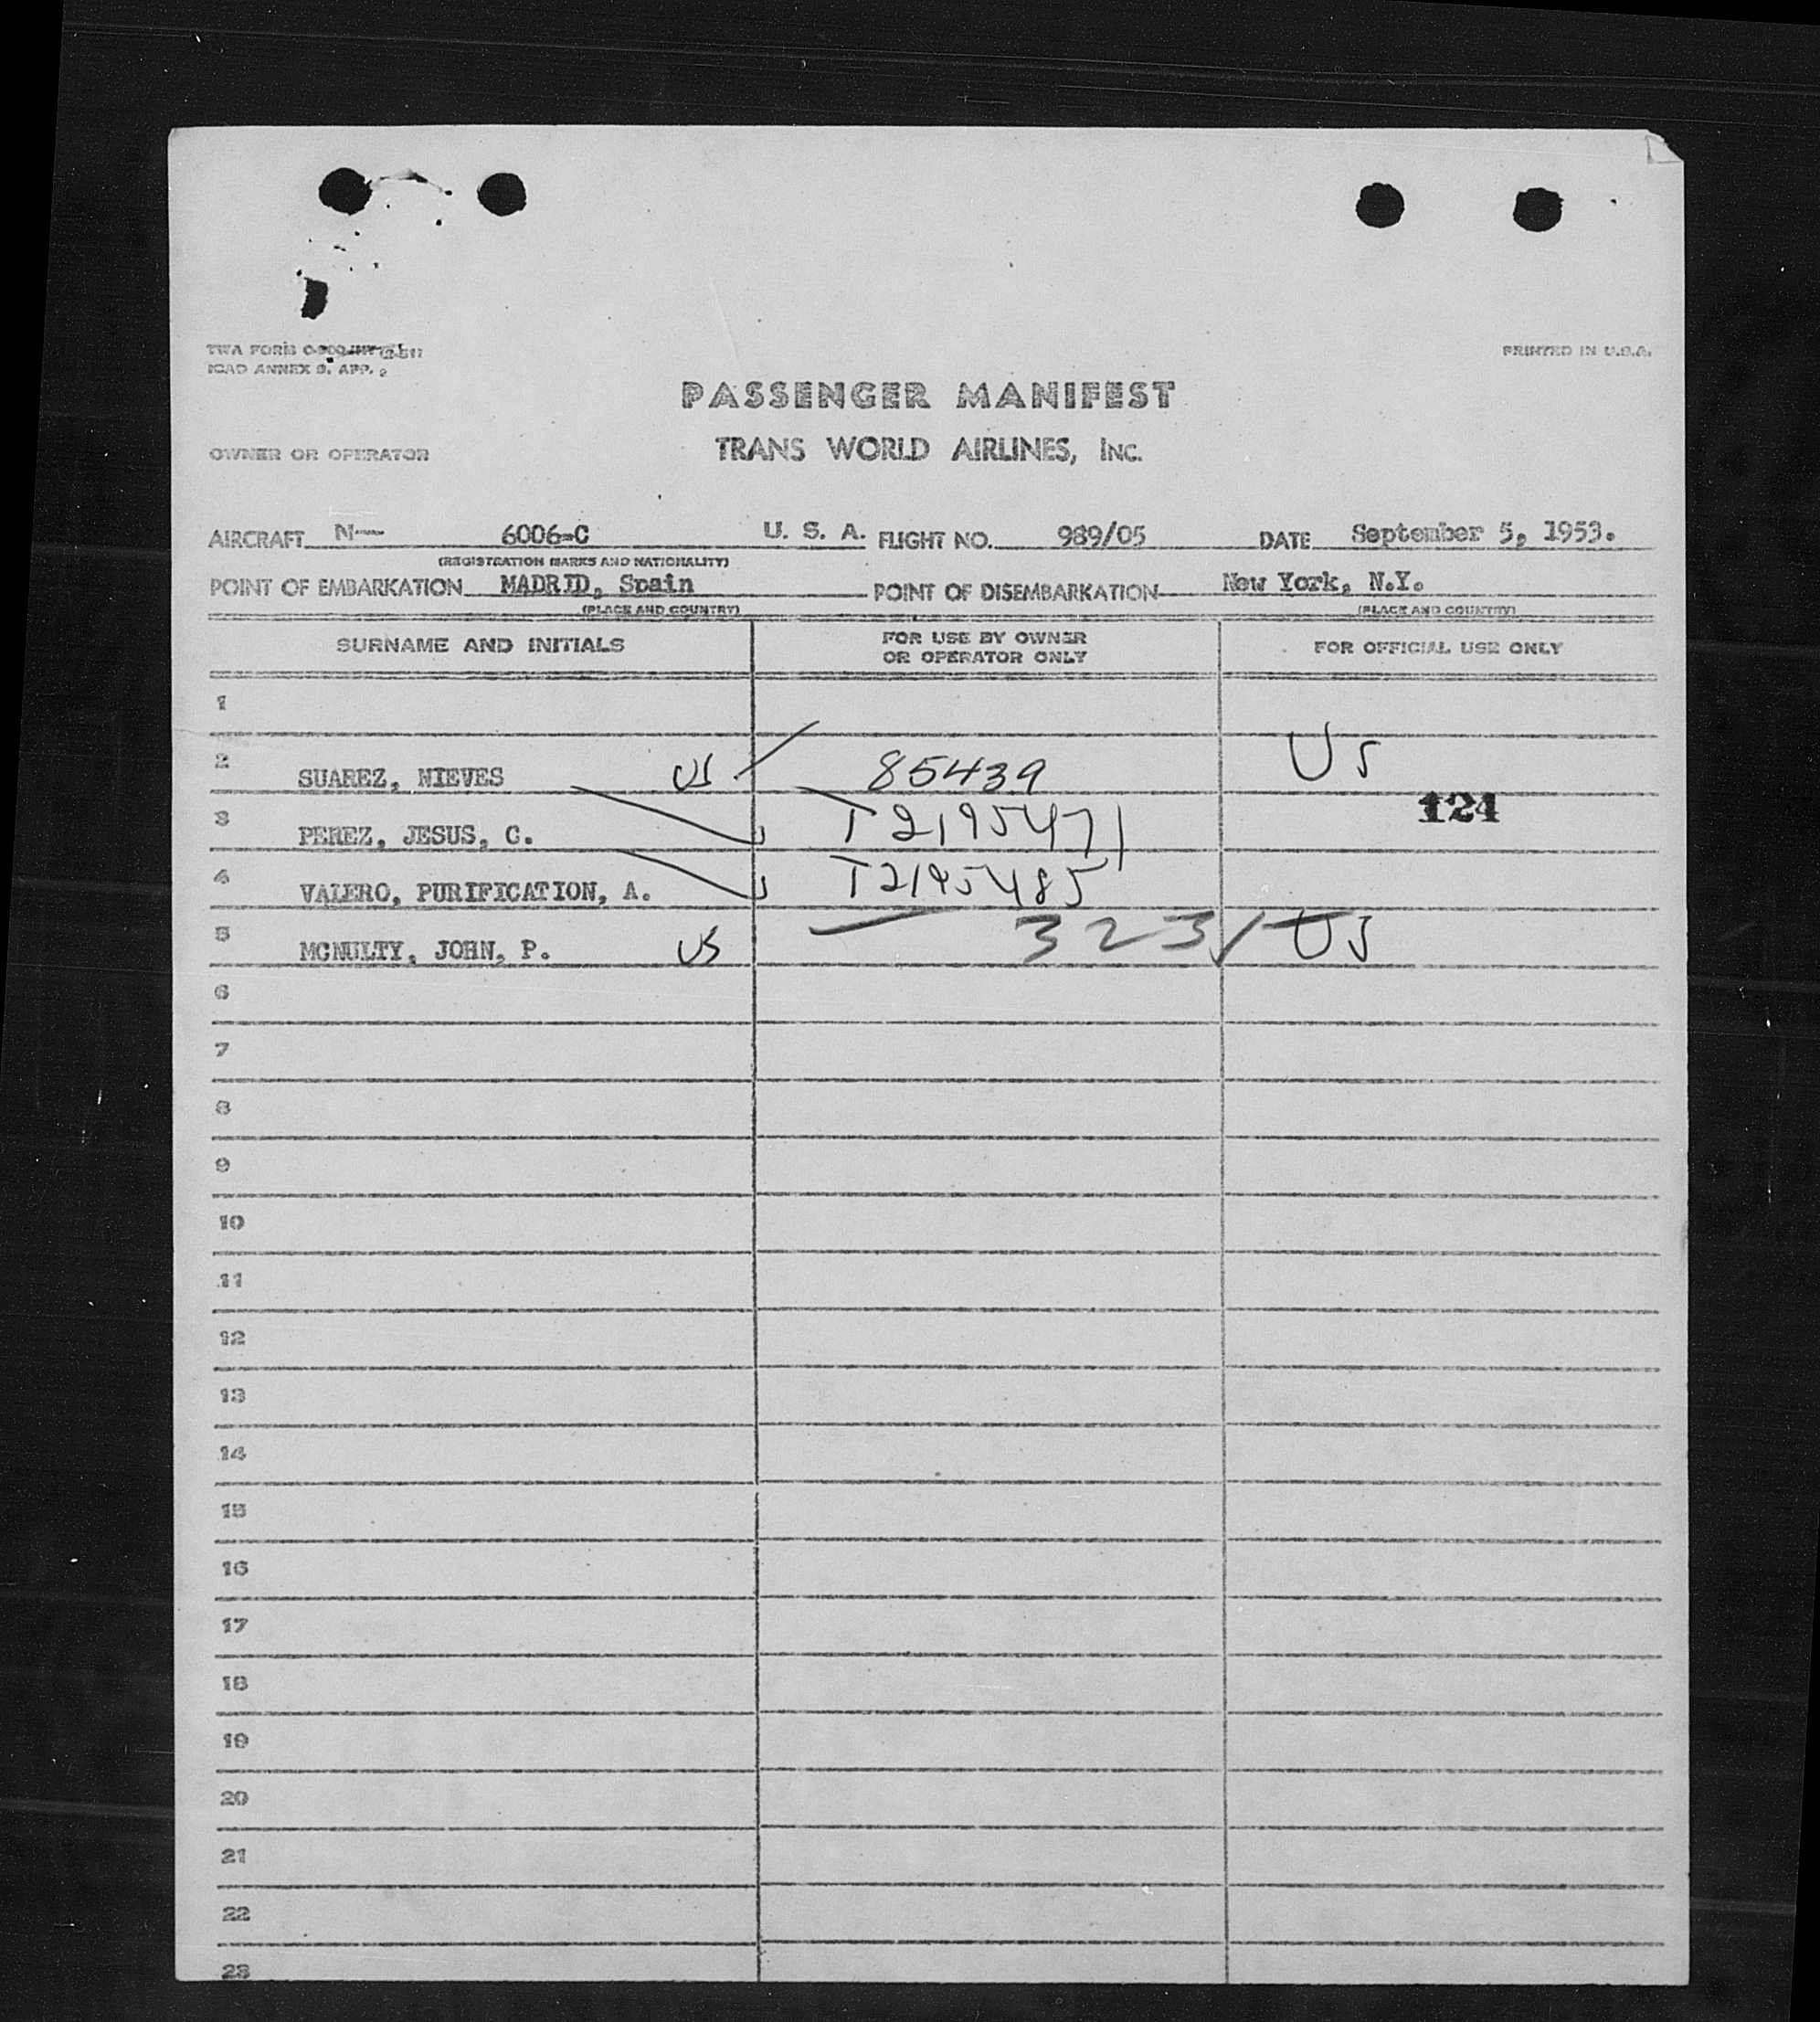 PRINTED IN U.S.A.
ICAO ANNEX 9, APP. 2
PASSENGER MANIFEST
OWNER OR OPERATOR TRANS WORLD AIRLINES, INC.
AIRCRAFT N— 6006-C U. S. A. FLIGHT NO. 989/05 DATE September 5, 1953.
(REGISTRATION MARKS AND NATIONALITY)
POINT OF EMBARKATION MADRID, Spain POINT OF DISEMBARKATION New York, N.Y.
(PLACE AND COUNTRY) (PLACE AND COUNTRY)
SURNAME AND INITIALS FOR USE BY OWNER OR OPERATOR ONLY FOR OFFICIAL USE ONLY
1
2 SUAREZ, NIEVES US 85439 US
3 PEREZ, JESUS, C. T2195471 124
4 VALERO, PURIFICATION, A. T2195485
5 MCNULTY, JOHN, P. US 3231 US
6
7
8
9
10
11
12
13
14
15
16
17
18
19
20
21
22
23